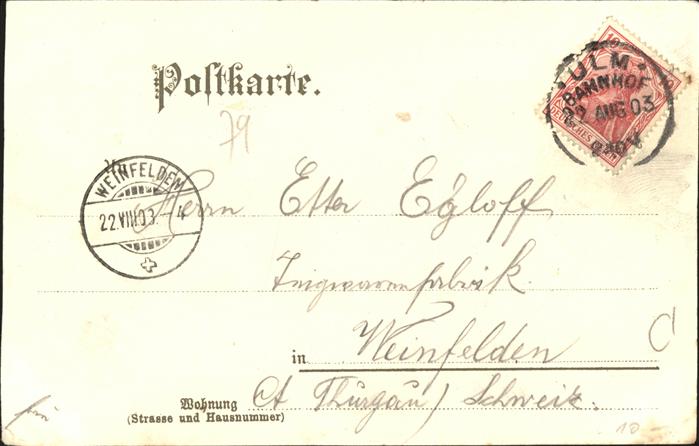 Postkarte.
ULM
BAHNHOF
AUG 03
10
DEUTSCHES REICH
79
WEINFELDEN
22.VIII.03.-4
Herrn Etter Egloff
Teigwarenfabrik
in Weinfelden
Ct Thurgau) Schweiz.
Wohnung
(Strasse und Hausnummer)
10 -